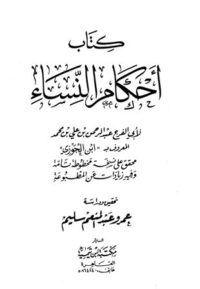 كتاب
أحكام النساء
لأبي الفرج عبد الرحمن بن علي بن محمد
المعروف بـ - ابن الجوزي -
محقق على نسخة مخطوطة تامة
وفيه زيادات عن المطبوعة
تحقيق ودراسة
عمرو عبد المنعم سليم
الناشر
مكتبة ابن تيمية
القاهرة